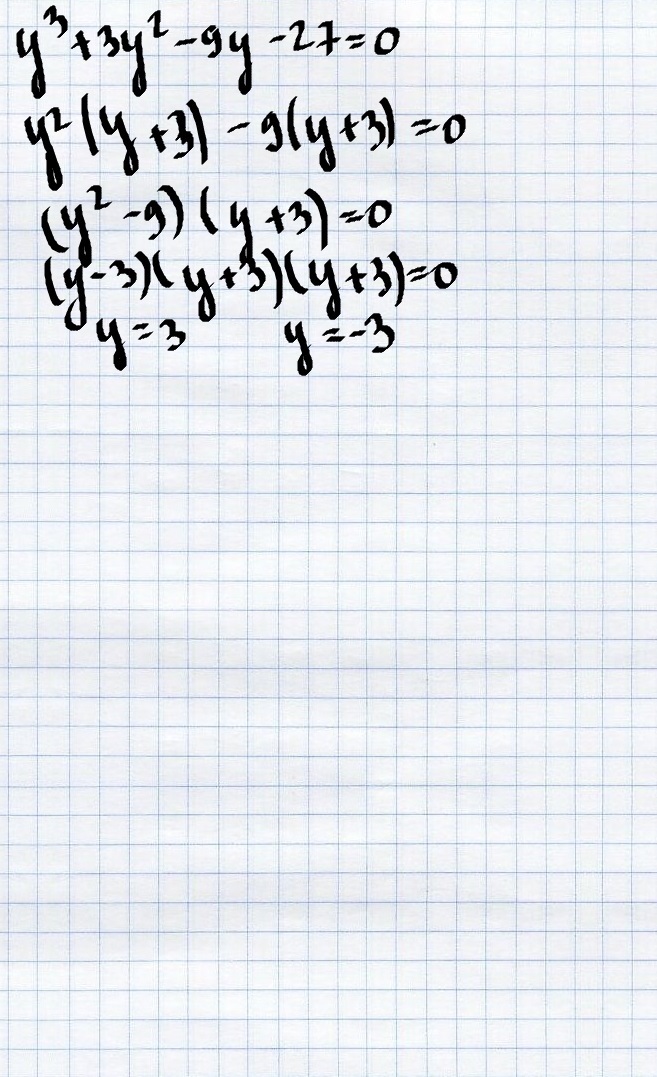 y³+3y²-9y-27=0
y²(y+3)-9(y+3)=0
(y²-9)(y+3)=0
(y-3)(y+3)(y+3)=0
y=3 y=-3